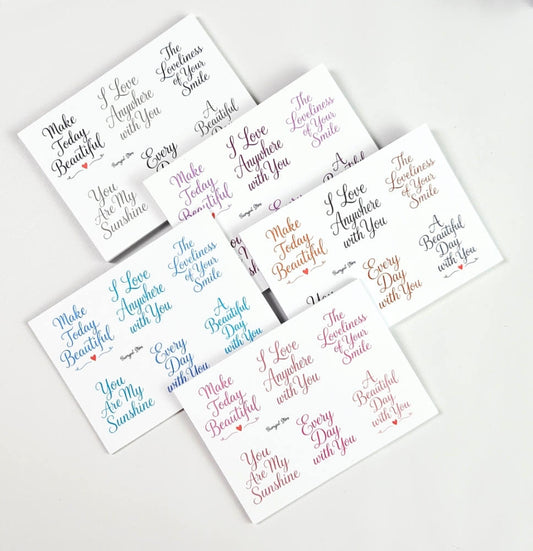 Make
Today
Beautiful
I Love
Anywhere
with You
The
Loveliness
of Your
Smile
You
Are My
Sunshine
Every
Day
A
Beautiful
Make
Today
Beautiful
I Love
Anywhere
with You
The
Loveliness
of Your
Smile
A
Beautiful
Make
Today
Beautiful
I Love
Anywhere
with You
The
Loveliness
of Your
Smile
You
Every
Day
with You
A
Beautiful
Day
with You
Make
Today
Beautiful
I Love
Anywhere
with You
The
Loveliness
of Your
Smile
You
Are My
Sunshine
Every
Day
with You
A
Beautiful
Day
with You
Make
Today
Beautiful
I Love
Anywhere
with You
The
Loveliness
of Your
Smile
You
Are My
Sunshine
Every
Day
with You
A
Beautiful
Day
with You